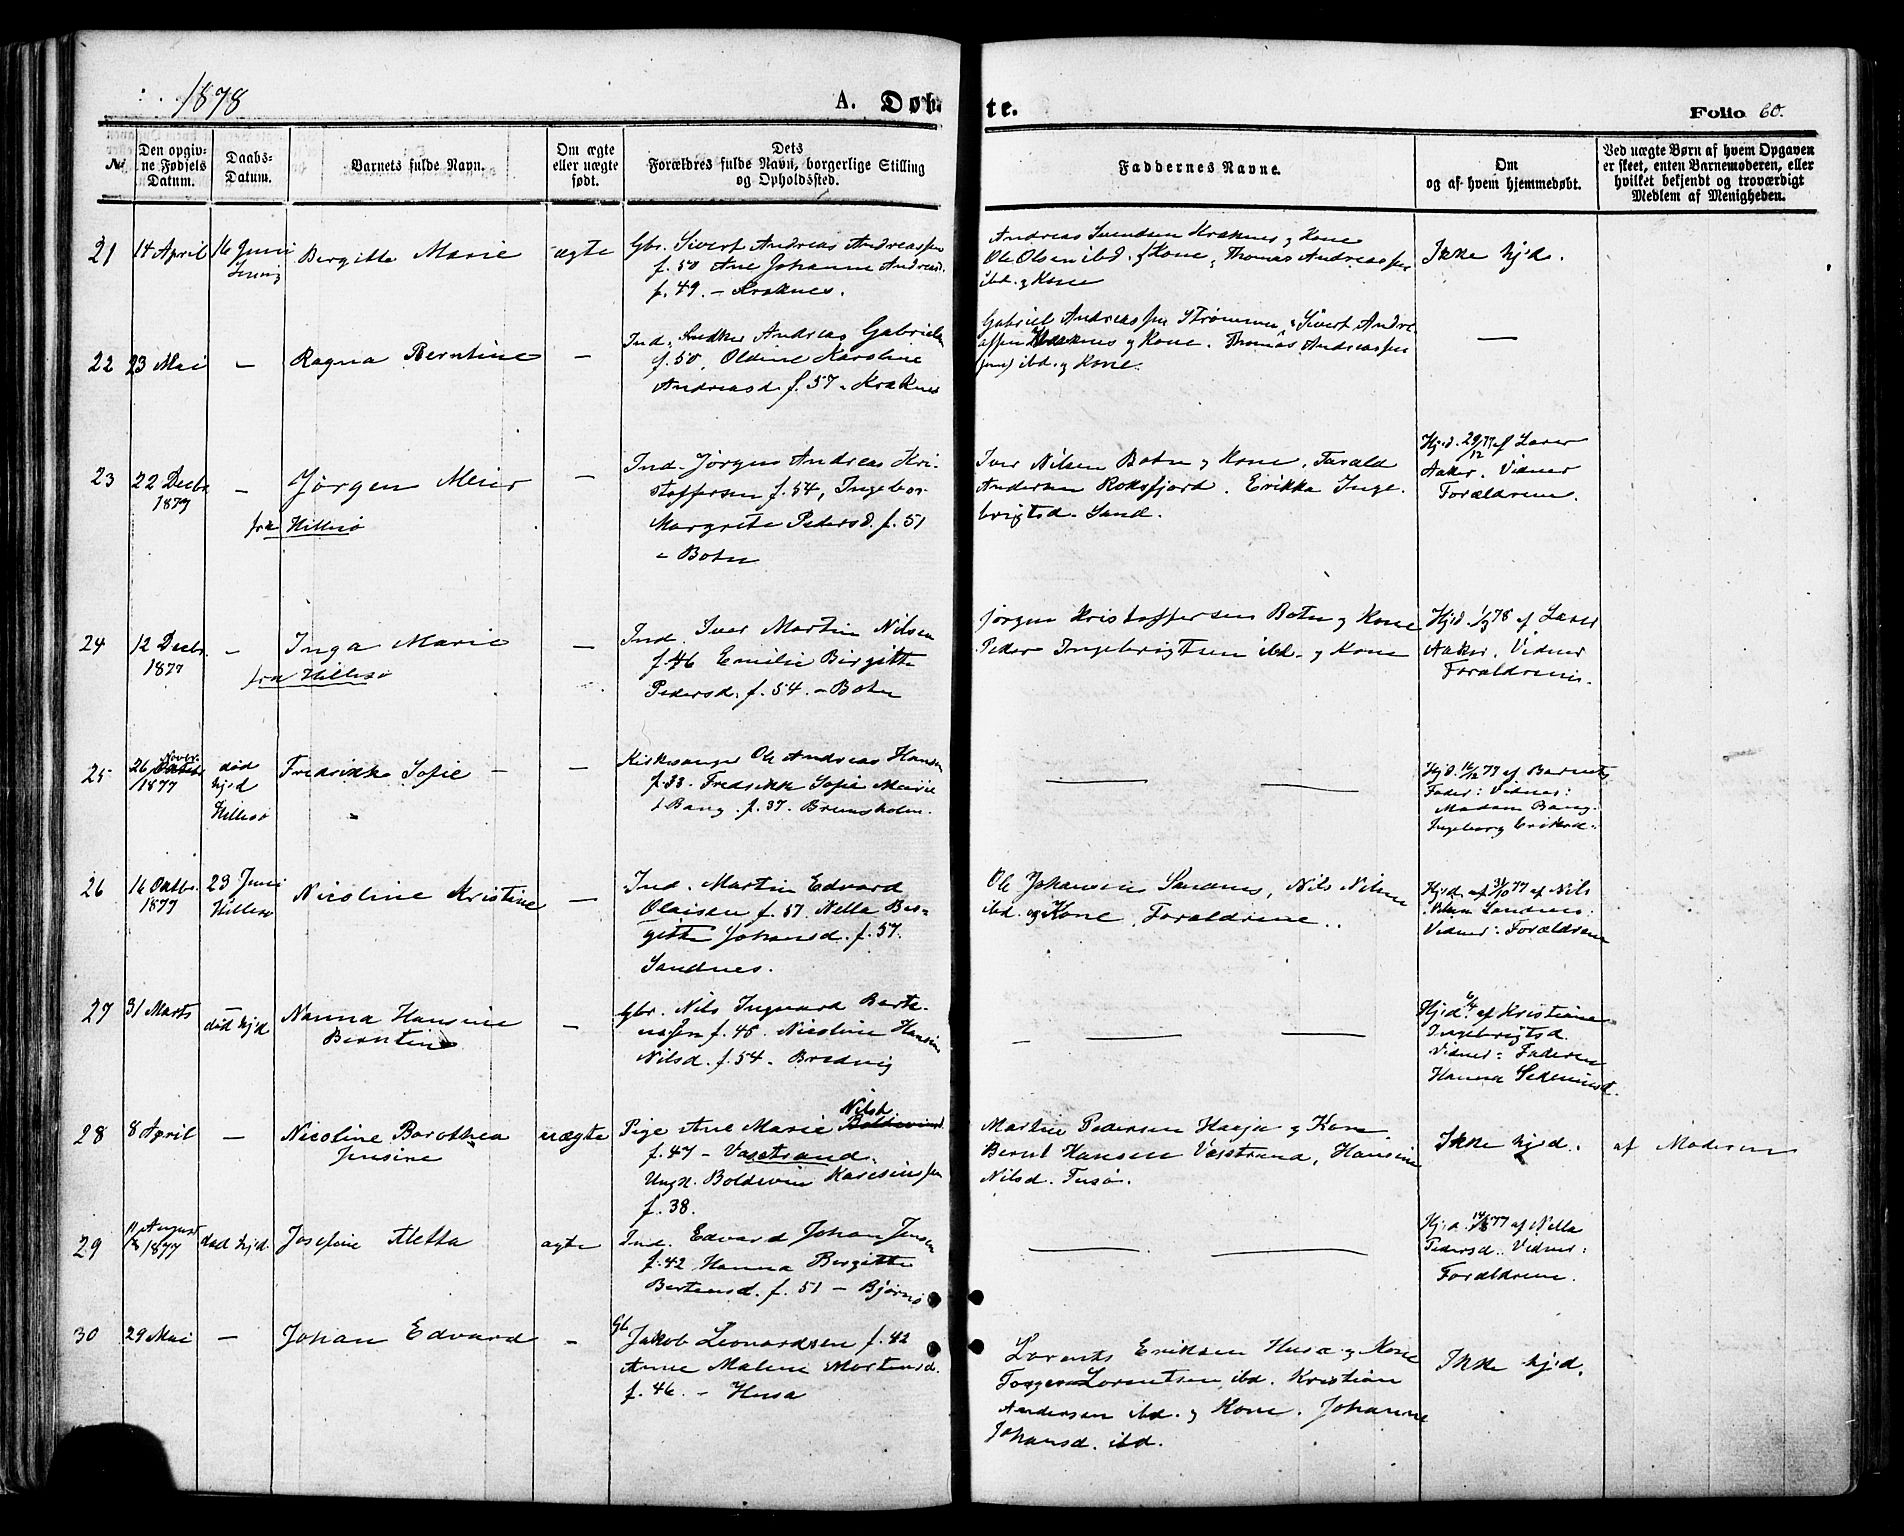 1878
A. Døbte.
Folio 60.
No
Den opgivne Fødsels Datum.
Daabs-Datum.
Barnets fulde Navn.
Om ægte eller uægte født.
Dets Forældres fulde Navn, borgerlige Stilling og Opholdssted.
Faddernes Navne.
Om og af hvem hjemmedøbt.
Ved uægte Børn af hvem Opgaven er skeet, enten Barnemoderen, eller hvilket bekjendt og troværdigt Medlem af Menigheden.
21
14 April
16 Juni
Birgitte Marie
ægte
Gbr. Sivert Andreas Andreassen
f. 50 Ane Johanna Andreasd.
f. 49. – Kraknes.
Andreas Svendsen Kraknes og Kone
Ole Olsen ibd. og Kone, Thomas Andreassen
ibd. og Kone
Ikke hjd.
22
23 Mai
–
Ragna Berntine
–
Ind. Andreas Gabrielsen
f. 50, Oldine Karoline
Andreasd f. 57 – Kraknes
Gabriel Andreassen Strømmen, Sivert Andre-
assen Kraknes og Kone. Thomas Andreassen
ibd. og Kone.
—
23
22 Decbr.
1877
–
Jørgen Meier
fra Hillesø
–
Ind. Jørgen Andreas Kri-
stoffersen f. 54, Ingebor-
Margrete Pedersd. f. 51
– Botn
Iver Nilsen Botn og Kone, Tarald
Andersen Roksfjord. Erikka Inge-
brigtsd. Sand.
Hjd. 29/12 77 af Lærer
Aaker. Vidner
Forældrene.
24
12 Decbr.
1877
–
Inga Marie
fra Hillesø
–
Ind. Iver Martin Nilsen
f. 46 Emilie Birgitte
Pedersd. f. 54. – Botn
Jørgen Kristoffersen Botn og Kone
Peder Ingebrigtsen ibd. og Kone
Hjd. 1/3 78 af Lærer
Aaker. Vidner
Forældrene.
25
26 Novbr.
1877
død
hjd
Hillesø
Fredrikke Sofie –
–
Kirkesanger Ole Andreas Hansen
f. 33. Fredrikke Sofie Meier
f. Bang. f. 37. Brensholm.
— —
Hjd. 16/12 77 af Barnets
Fader: Vidner:
Madam Bang.
Ingeborg Eriksd.
26
16 Oktbr.
1877
23 Juni
Hillesø
Nicoline Kristine
–
Ind. Martin Edvard
Olaisen f. 57. Nella Ber-
gitte Johansd. f. 57.
Sandnes.
Ole Johansen Sandnes, Nils Nilsen
ibd. og Kone, Forældrene.
Hjd. af 31/10 77 af Nils
Nilsen Sandnes:
Vidner: Forældrene
27
31 Marts
–
død hjd
Nanna Hansine
Berntine
–
Gbr. Nils Ingvard Berte-
ussen f. 48. Nicoline Hansine
Nilsd. f. 54. – Bredvig
– — —
Hjd. 6/4 af Kristiane
Ingebrigtsd.
Vidner: Faderen
Hanna
28
8 April
–
Nicoline Dorothea
Jensine
uægte
Pige Ane Marie Nilsd.
f. 47 – Vasstrand.
Ungk. Boldevin
f. 38.
Martin Pedersen Haaja og Kone.
Bernt Hansen Vasstrand, Hansine
Nilsd. Tusø.
Ikke hjd.
af Moderen
29
August
1877
død hjd.
Josefine Aletta
ægte
Ind. Edvard Johan Jensen
f. 42 Hanna Birgitte
Bertensd. f. 51 – Bjørnø
— —
Hjd. 14/8 77 af Nella
Pedersd. Vidner:
Forældrene.
30
29 Mai
–
Johan Edvard
–
Gb.
Jakob Leonardsen f. 42
Anne Malene Mortensd.
f. 46. – Husa
Lorents Eriksen Husa og Kone
Torger Lorentsen ibd. Kristian
Andersen ibd. og Kone. Johanne
Johansd. ibd.
Ikke hjd.